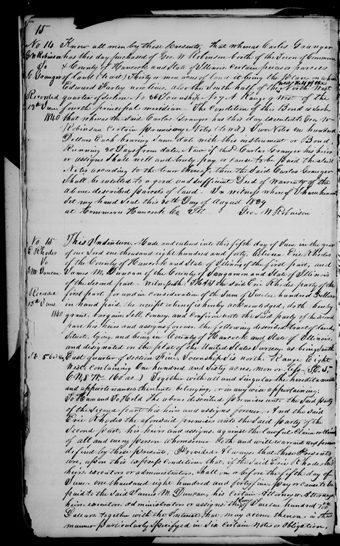 15
No 14 Know all men by these Presents, that whereas Carlos Granger
G W Robinson has this day purchased of Geo. W. Robinson both of the Town of Commerce
& County of Hancock and State of Illinois certain pieces or parcels
C Granger of land (to wit) Thirty or more acres of land it being the place on which
Edward Hurley now lives, also the South half of the North West
Recorded quarter of section No Township Range West of the
13th June fourth principal meridian. The Condition of the Bond is such
1840 that whereas the said Carlos Granger has this day executed Geo. W.
Robinson Certain promissory Notes (to wit) Two Notes one hundred
Dollars Each bearing Even date with this instrument or Bond
Running Days from date. Now if the Carlos Granger his heirs
or assigns shall well and truly pay or cause to be paid the said
Notes according to the tenor then the said Carlos Granger
shall be entitled to a good and sufficient Deed of Warranty of the
above described parcels of Land. In witness whereof I have hereunto
set my hand this 20th Day of August 1839
at Commerce Hancock Co. Ill. Geo. W Robinson
No 15 This Indenture, Made and entered into this fifth day of June in the year
E Rhodes of our Lord one thousand eight hundred and forty, Between Eric Rhodes
Vs of the County of Hancock and State of Illinois of the first part, and
J M Duncan James M. Duncan of the County of Sangamon and State of Illinois
of the second part. Witnesseth, That the said Eric Rhodes party of the
Recorded first part, for and in consideration of the Sum of Twelve hundred Dollars
13th June in hand paid, the receipt whereof is hereby acknowledged, doth hereby
1840 grant, bargain, sell, convey and confirm unto the said party of the second
part his heirs and assigns forever, the following described tract of land
situate, lying and being in the County of Hancock and State of Illinois
and designated on the plat of the United States Survey as being South
East quarter of section Five, Township Six north Range Eight
West, containing One hundred and sixty acres, more or less
Together with all and singular the hereditaments
and appurtenances thereunto belonging, or in any wise appertaining;
To Have and To Hold the above described premises unto the said party
of the second part, his heirs and assigns forever. And the said
Eric Rhodes the aforesaid premises unto the said party of the
second part, his heirs and assigns against the lawful claim
of all and every person whomsoever doth and will warrant and forever
defend by these presents. Provided Always that these Presents
are upon this express Condition that if the said Eric Rhodes, his
heirs executors or administrators, shall on or before the fifth day of
June, one thousand eight hundred and forty pay or cause to be
paid to the said James M. Duncan, his certain Attorney or Attorneys
heirs executors administrators or assigns the sum of Twelve hundred
Dollars together with the interest that may accrue thereon in the
manner particularly specified in Six certain Notes or Obligations,